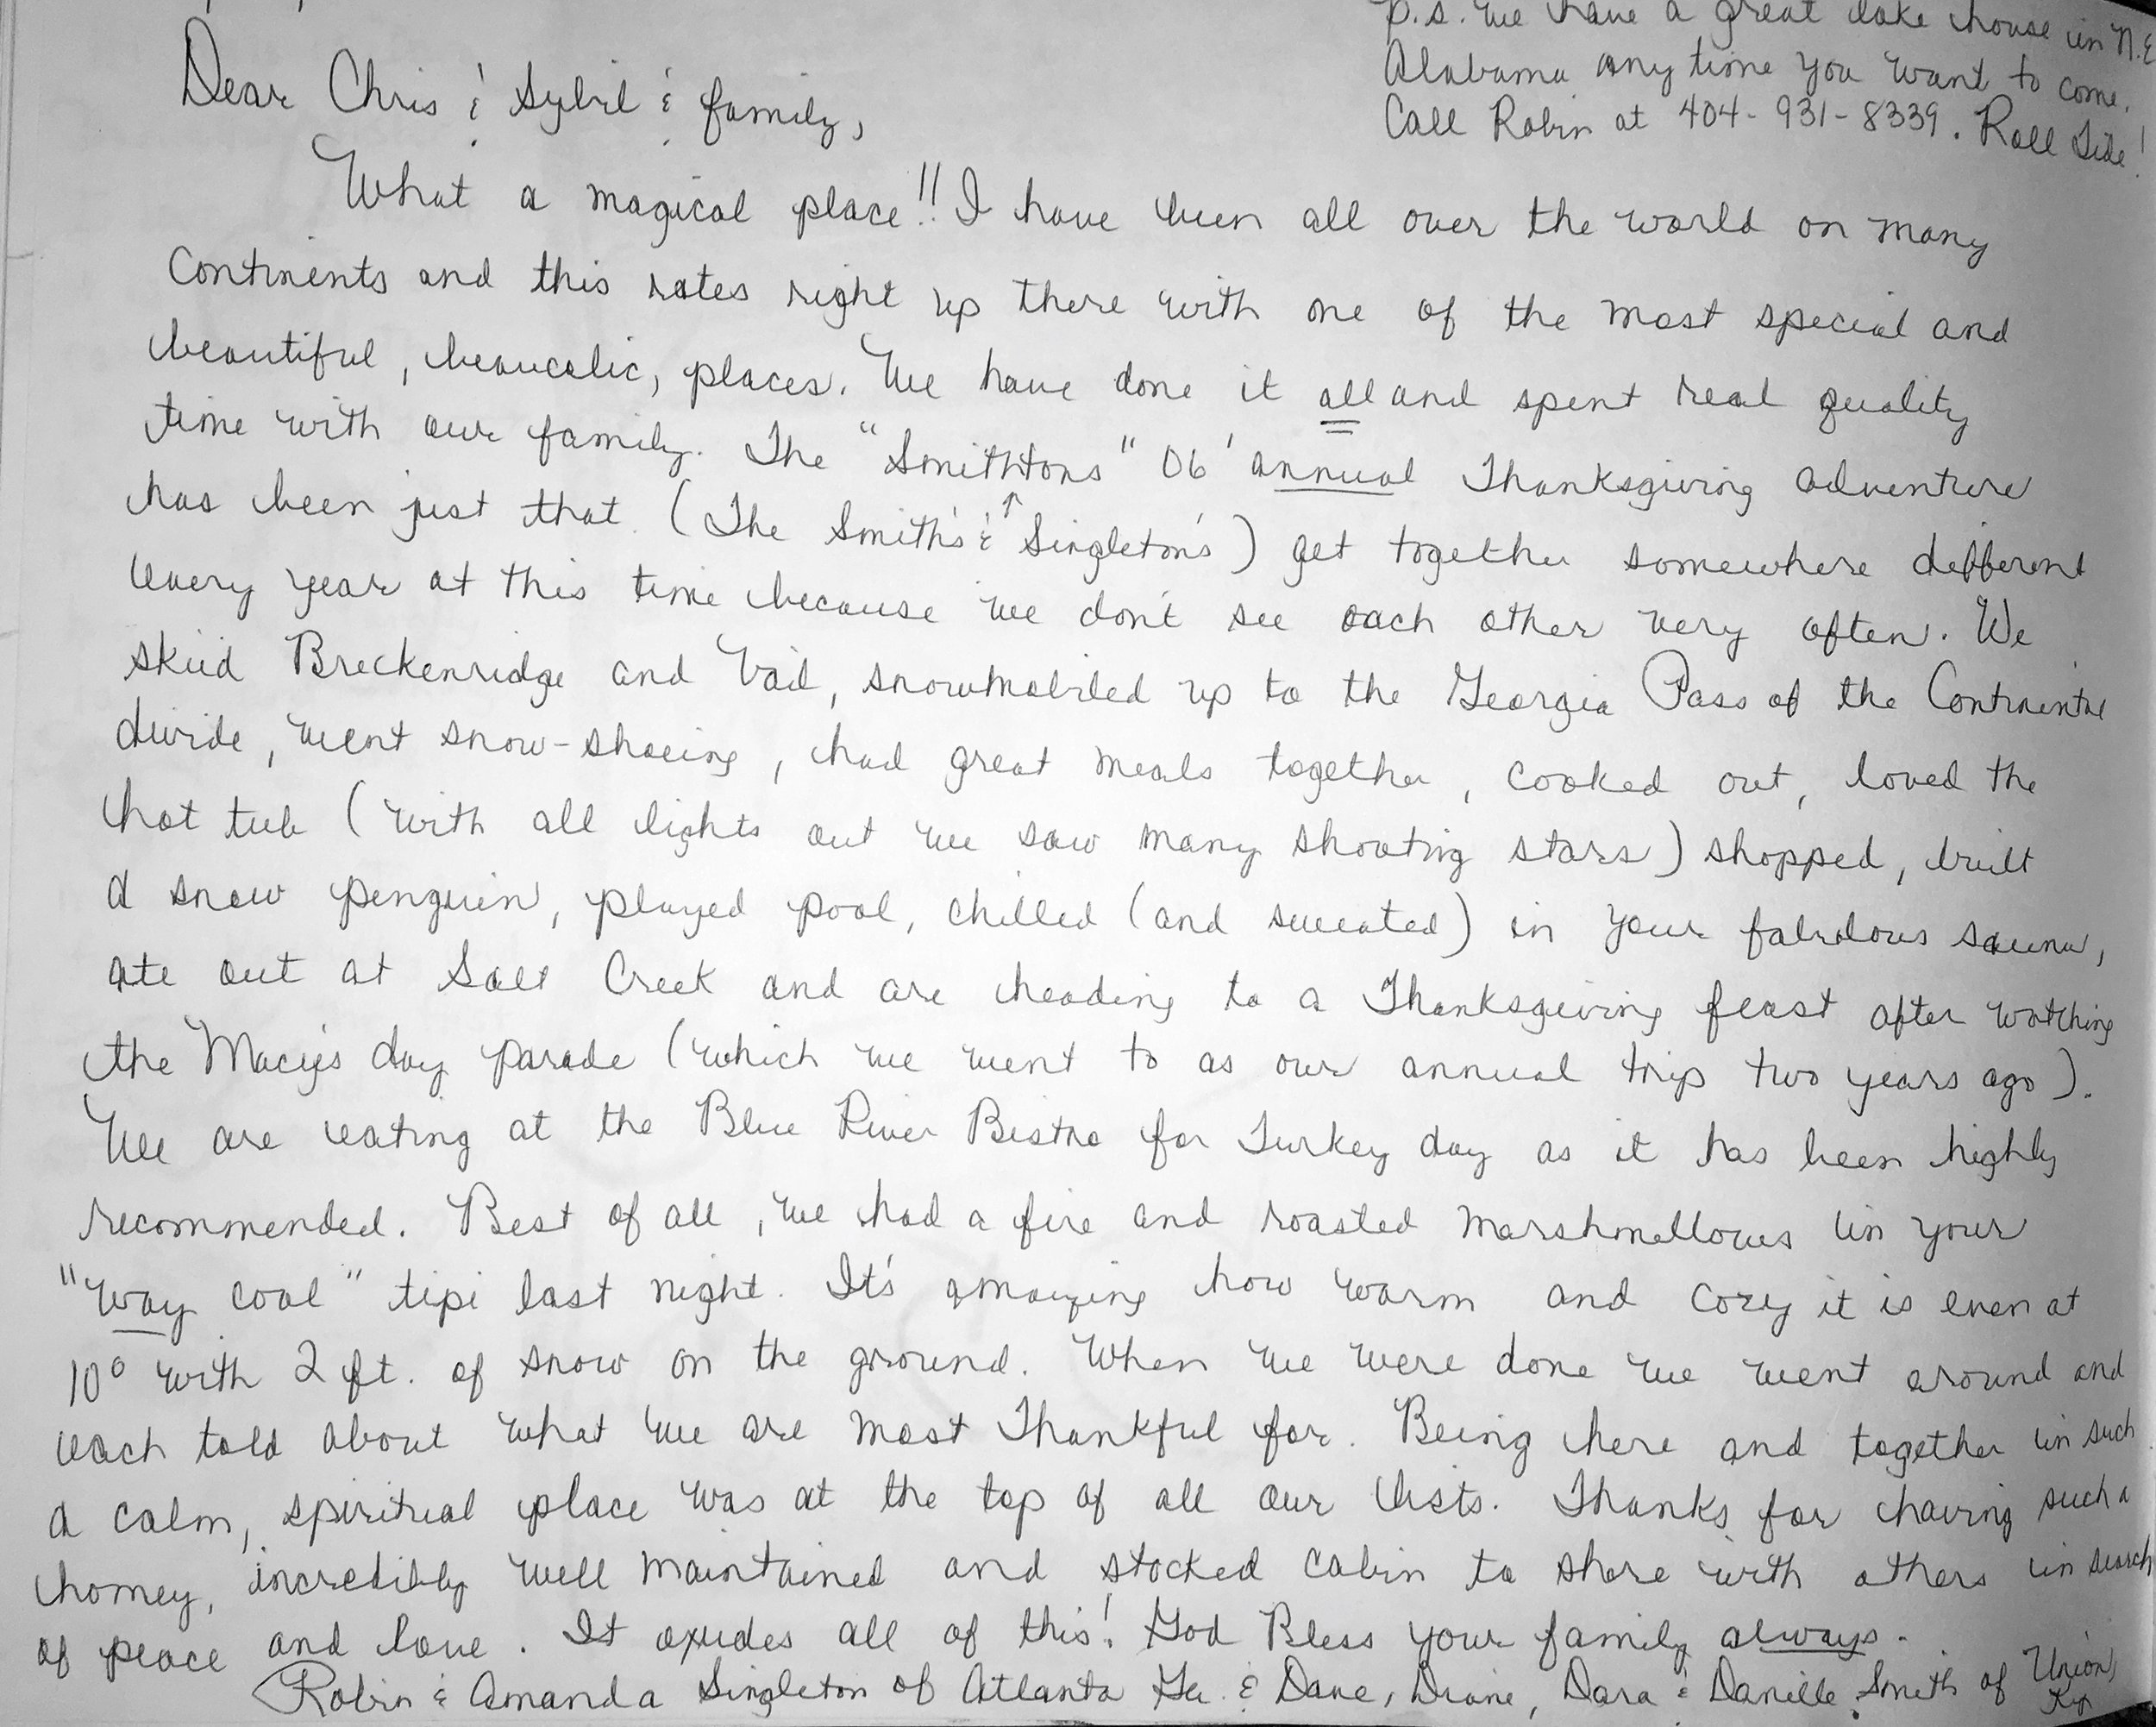 P.S. We have a great lake house in N.E
Alabama any time you want to come.
Call Robin at 404-931-8339. Roll Tide!
Dear Chris & Sybil & family,
What a magical place!! I have been all over the world on many
continents and this rates right up there with one of the most special and
beautiful, beaucolic, places. We have done it all and spent real quality
time with our family. The "Smithtons" 06' annual Thanksgiving adventure
has been just that. (The Smith's & Singleton's) get together somewhere different
every year at this time because we don't see each other very often. We
skiid Breckenridge and Vail, snowmobiled up to the Georgia Pass of the Continental
divide, went snow-shoeing, had great meals together, cooked out, loved the
hot tub (with all lights out we saw many shooting stars) shopped, built
a snow penguin, played pool, chilled (and sweated) in your fabulous sauna,
ate out at Salt Creek and are heading to a Thanksgiving feast after watching
the Macy's day parade (which we went to as our annual trip two years ago).
We are eating at the Blue River Bistro for Turkey day as it has been highly
recommended. Best of all, we had a fire and roasted marshmellows in your
"way cool" tipi last night. It's amazing how warm and cozy it is even at
10° with 2 ft. of snow on the ground. When we were done we went around and
each told about what we are most Thankful for. Being here and together in such
a calm, spiritual place was at the top of all our lists. Thanks for having such a
homey, incredibly well maintained and stocked cabin to share with others in search
of peace and love. It oxudes all of this! God Bless your family always.
Robin & Amanda Singleton of Atlanta Ga. & Dave, Diane, Dara & Danielle Smith of Union,
Ky